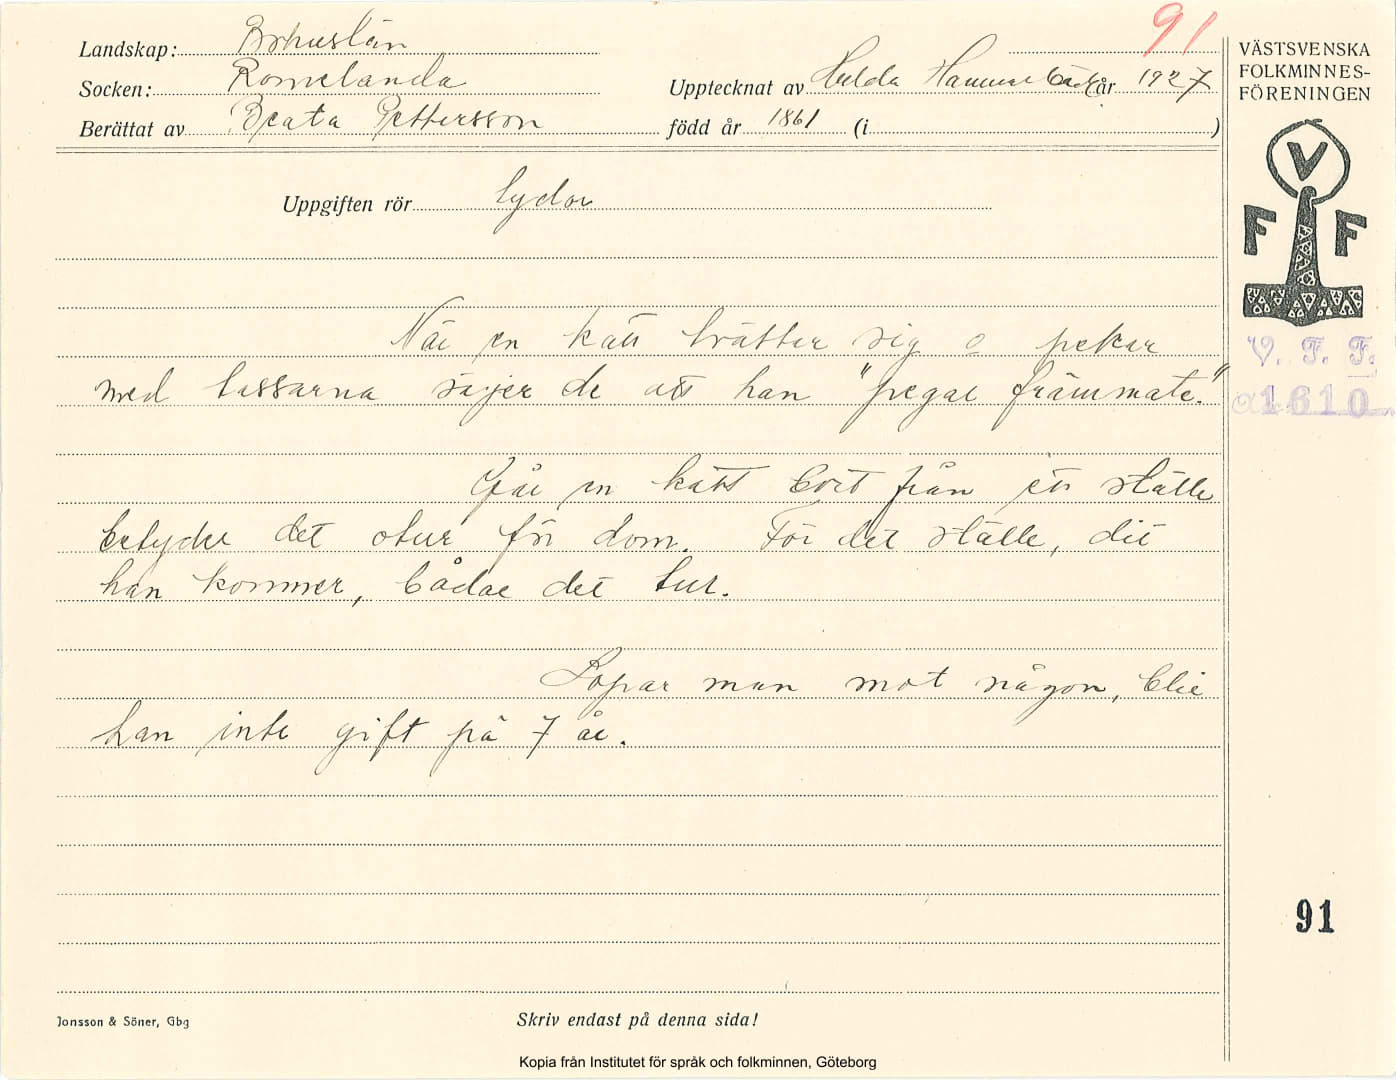 91
Landskap: Bohuslän
Socken: Romelanda
Upptecknat av Hulda Hammarbäck år 1927
Berättat av Beata Pettersson född år 1861 (i )
VÄSTSVENSKA
FOLKMINNES-
FÖRENINGEN
V
F F
Uppgiften rör lydor
V. F. F.
1610
När en katt tvättar sig o pekar
med tassarna säjer de att han "pegar främmate."
Går en katt bort från ett ställe
betyder det otur för dom. För det ställe, dit
han kommer, bådar det tur.
Sopar man mot någon, blir
han inte gift på 7 år.
91
Jonsson & Söner, Gbg
Skriv endast på denna sida!
Kopia från Institutet för språk och folkminnen, Göteborg